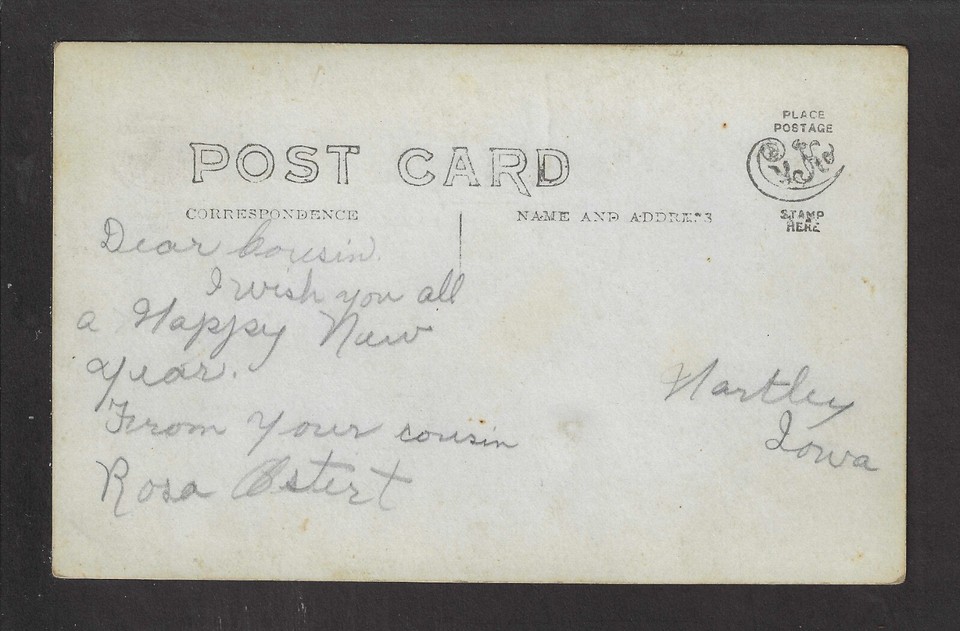 PLACE
POSTAGE
POST CARD
STAMP
HERE
CORRESPONDENCE
NAME AND ADDRESS
Dear Cousin.
I wish you all
a Happy New
Year.
From Your cousin
Rosa Ostert
Hartley
Iowa